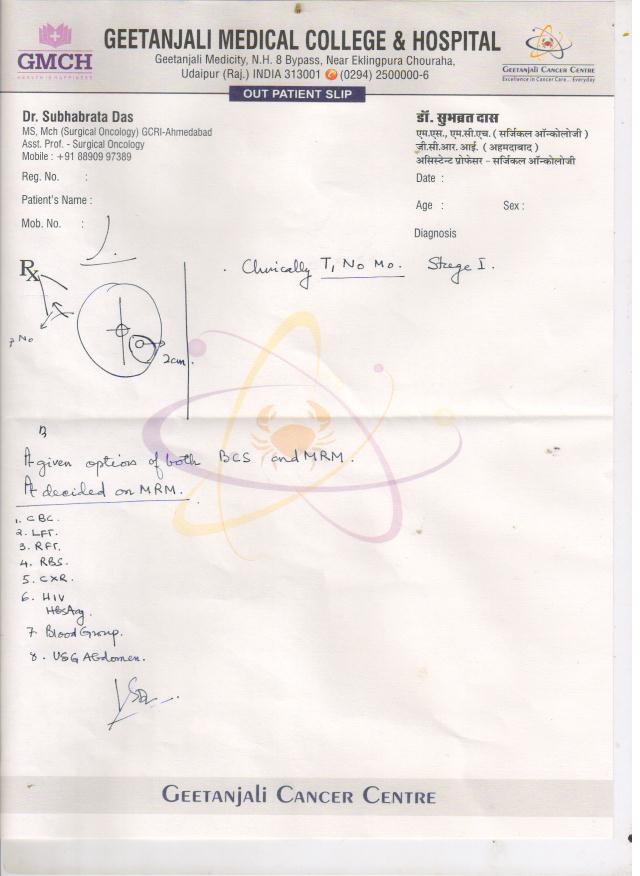 GMCH
HEALTH IS HAPPINESS
GEETANJALI MEDICAL COLLEGE & HOSPITAL
Geetanjali Medicity, N.H. 8 Bypass, Near Eklingpura Chouraha,
Udaipur (Raj.) INDIA 313001 (0294) 2500000-6
GEETANJALI CANCER CENTRE
Excellence in Cancer Care... Everyday
OUT PATIENT SLIP
Dr. Subhabrata Das
MS, Mch (Surgical Oncology) GCRI-Ahmedabad
Asst. Prof. - Surgical Oncology
Mobile : +91 88909 97389
Reg. No. :
Patient's Name :
Mob. No. :
डॉ. सुमब्रत दास
एम.एस., एम.सी.एच. ( सर्जिकल ऑन्कोलोजी )
जी.सी.आर. आई. ( अहमदाबाद )
असिस्टेन्ट प्रोफेसर - सर्जिकल ऑन्कोलोजी
Date :
Age : Sex :
Diagnosis
Rx
Clinically T1 N0 M0. Stage I.
N0
2cm.
given options of both BCS and MRM.
decided on MRM.
1. CBC.
2. LFT.
3. RFT.
4. RBS.
5. CXR.
6. HIV
HBsAg.
7. Blood Group.
8. USG Abdomen.
GEETANJALI CANCER CENTRE